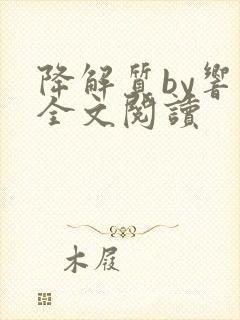 降解質by響
全文閱讀
木屐